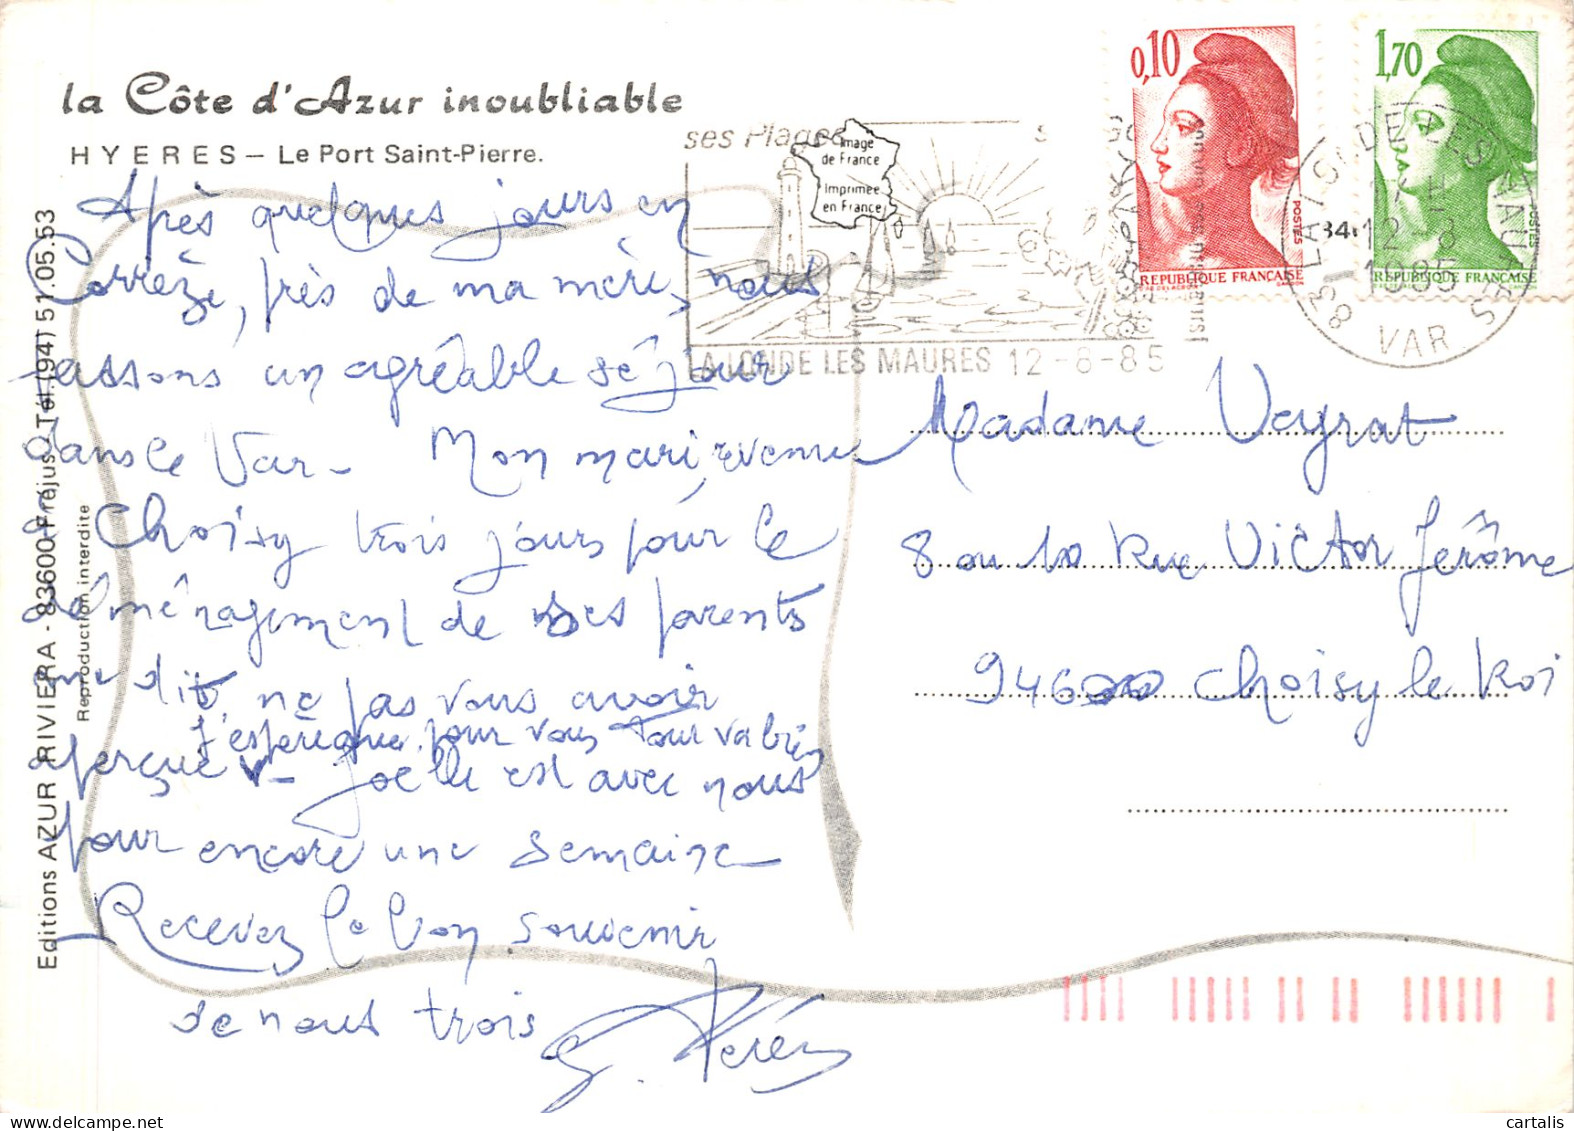 la Côte d'Azur inoubliable
HYERES – Le Port Saint-Pierre.
Après quelques jours en
Corrèze, près de ma mère, nous
passons un agréable séjour
dans le Var - Mon mari, revenu
à Choisy trois jours pour le
déménagement de ses parents
me dit ne pas vous avoir
aperçue - Joelle est avec nous
J'espère que pour vous tout va bien
pour encore une semaine
Recevez le bon souvenir
de nous trois
Editions AZUR RIVIERA - 83600 Fréjus - Tél. (94) 51.05.53
Reproduction interdite
ses Plages
Image
de France
Imprimée
en France
LA LONDE LES MAURES 12-8-85
0,10
POSTES
REPUBLIQUE FRANÇAISE
1,70
POSTES
REPUBLIQUE FRANÇAISE
LA LONDE LES MAURES
12-8
1985
83 VAR
Madame Veyrat
8 ou 10 Rue Victor Jerôme
94600 Choisy le Roi
cartalis